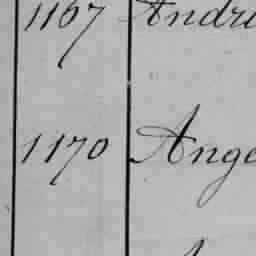 1167 Andre
1170 Ange